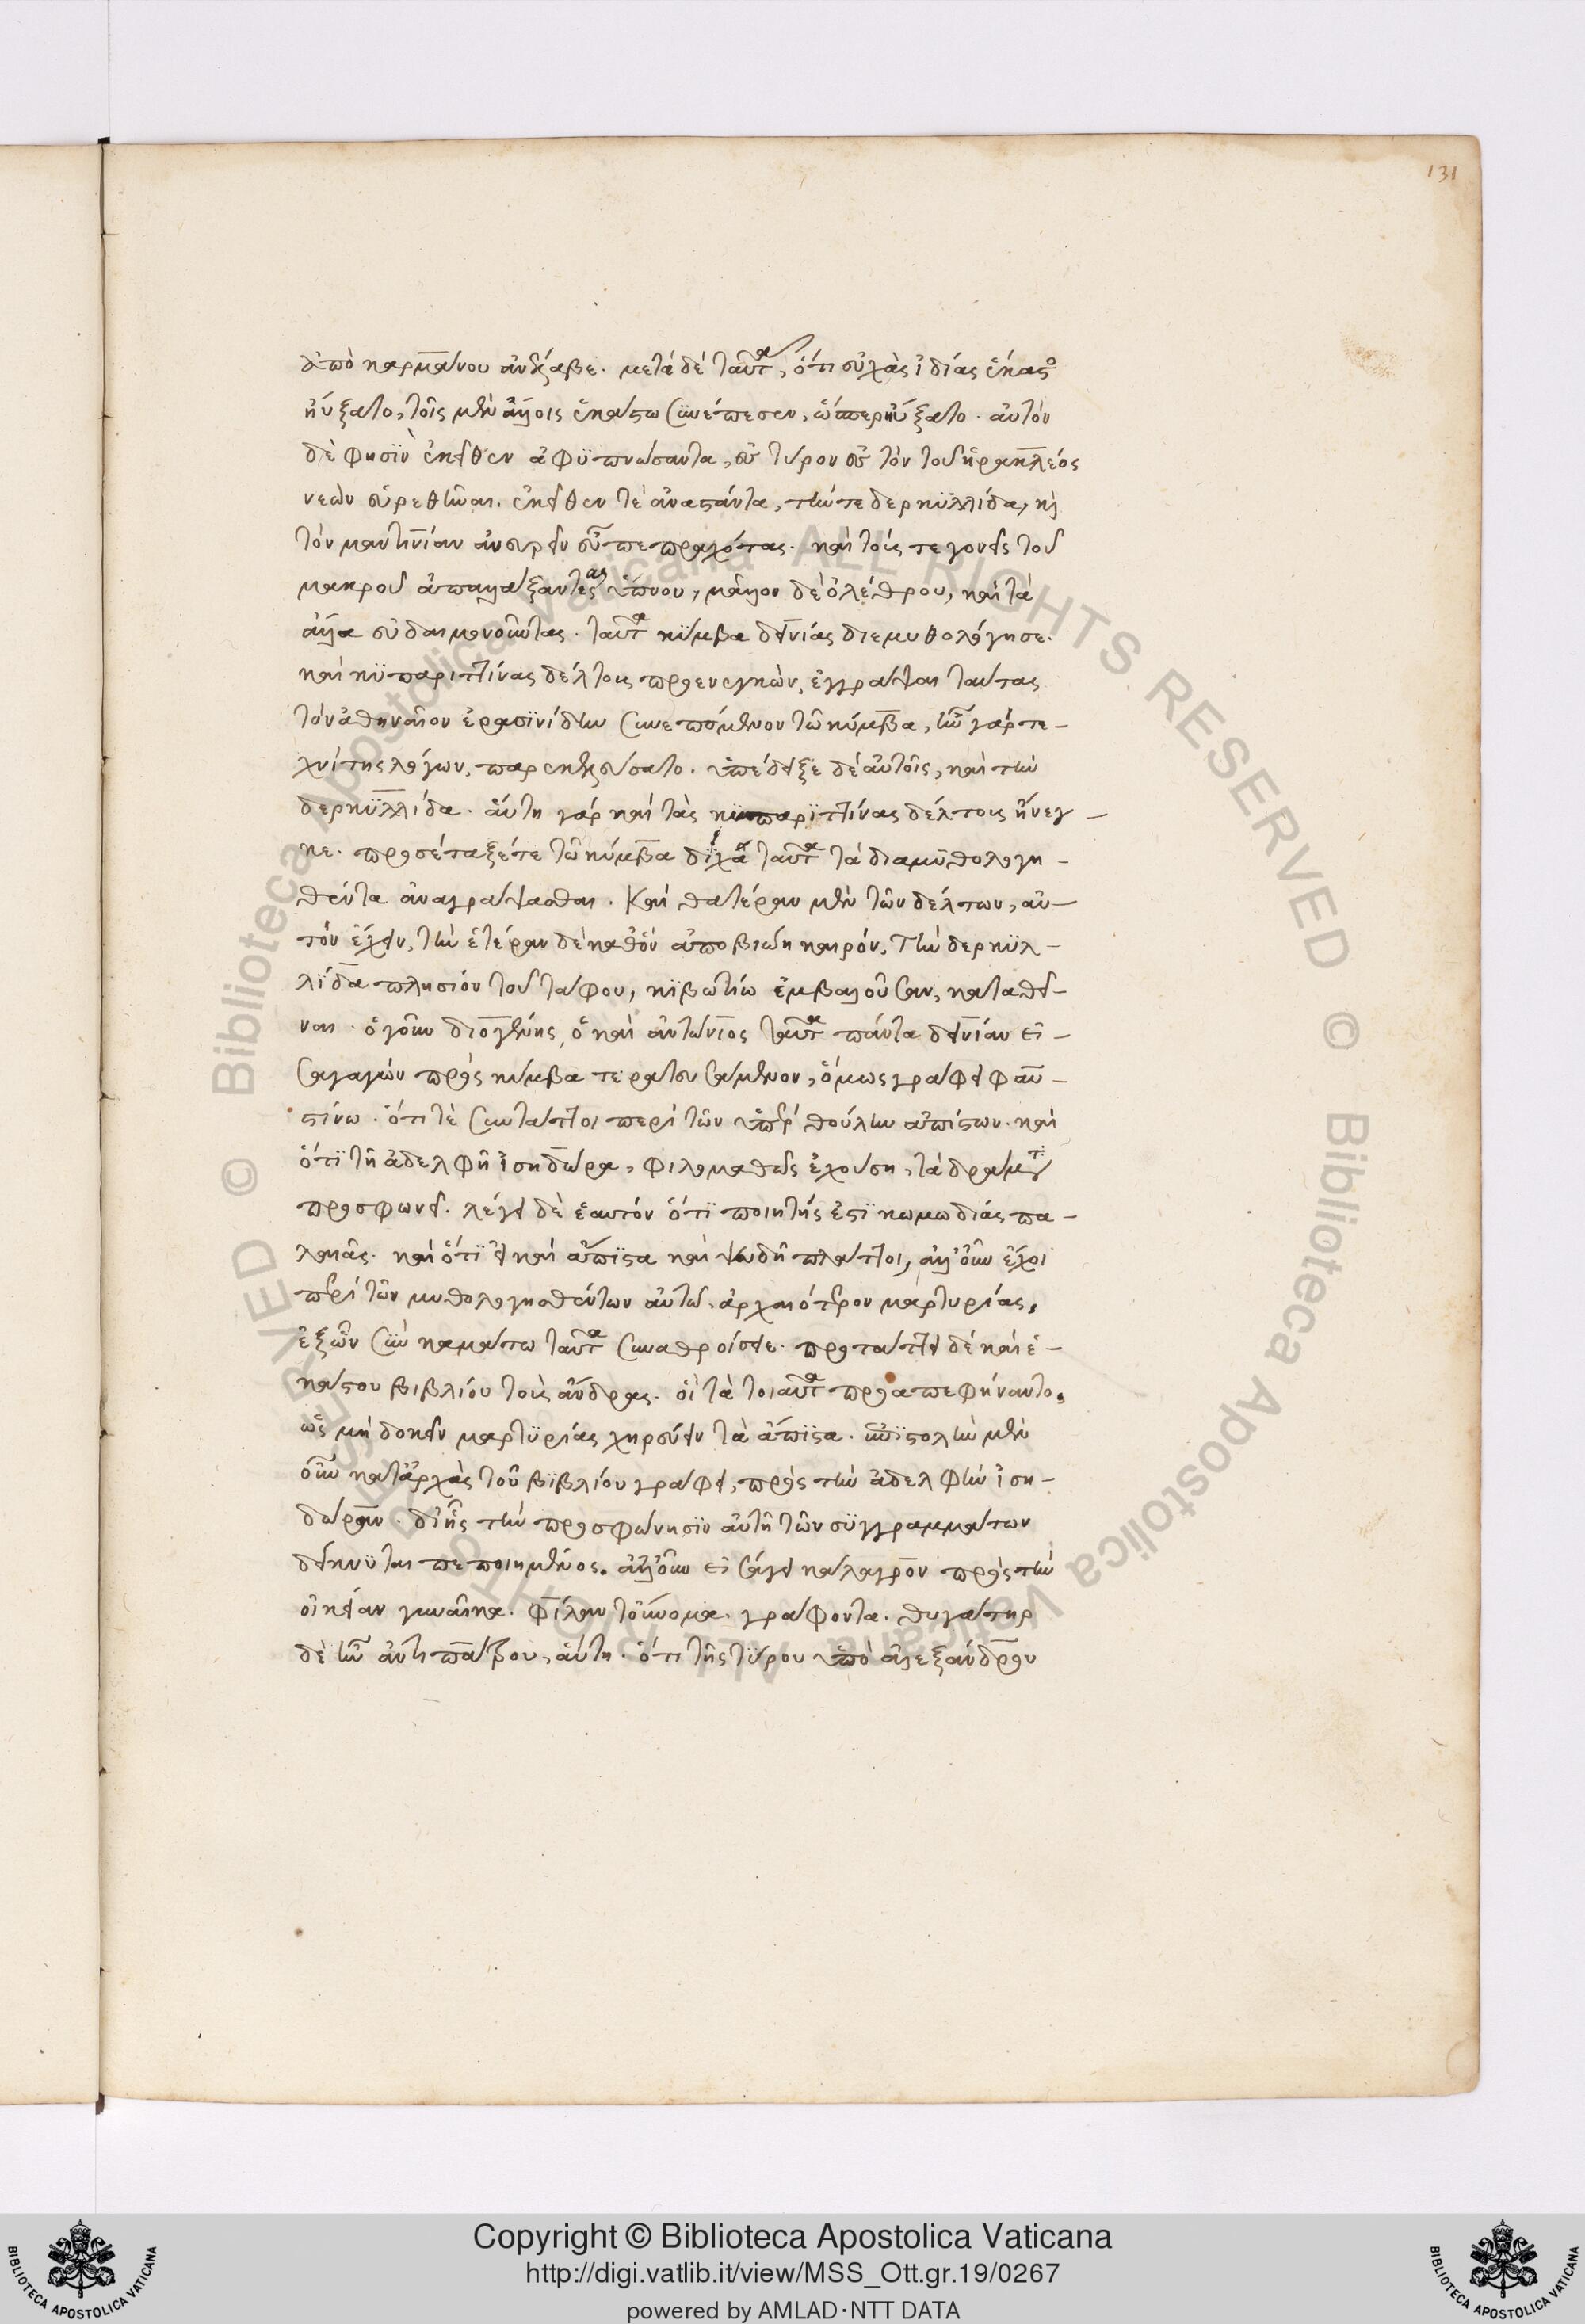 131
ἀπὸ καρμάνου ἀνέλαβε. μετὰ δὲ ταῦτα, ὅτι εὐχὰς ἰδίας ἕκαστος
ηὔξατο, τοῖς μὲν ἄλλοις ἑκάστω συνέπεσεν, ὥσπερ ηὔξατο. αὐτὸν
δὲ φησὶν ἐκεῖθεν ἀφυπνώσαντα, ἐν τύρου ἐν τὸν τοῦ ἡρακλέος
νεὼν εὑρεθῆναι. ἐκεῖθέν τε ἀναστάντα, τήν τε δερκυλλίδα, καὶ
τὸν μαντινίαν ἀνευρεῖν εὖ πεπραγότας. καὶ τοὺς τε γονεῖς τοῦ
μακροῦ ἀπαλλάξαντες ὕπνου, μᾶλλον δὲ ὀλέθρου, καὶ τὰ
ἄλλα εὐδαιμονοῦντας. ταῦτα κύμβα δεινίας διεμυθολόγησε.
καὶ κυπαριττίνας δέλτους προενεγκὼν, ἐγγράψαι ταύτας
τὸν ἀθηναῖον ἐρασινίδην συνεπόμενον τῶ κύμβα, ἦν γὰρ τε-
χνίτης λόγων, παρεκελεύσατο. ὑπέδειξε δὲ αὐτοῖς, καὶ τὴν
δερκυλλίδα. αὕτη γὰρ καὶ τὰς κυπαριττίνας δέλτους ἤνεγ-
κε. προσέταξέ τε τῶ κύμβα δίχα ταῦτα τὰ διαμυθολογη-
θέντα ἀναγράψασθαι. καὶ θατέραν μὲν τῶν δέλτων, αὐ-
τὸν ἔχειν, τὴν ἑτέραν δὲ καθ ὃν ἀποβιώη καιρόν, τὴν δερκυλ-
λίδα πλησίον τοῦ τάφου, κιβωτίω ἐμβαλοῦσαν, καταθεῖ-
ναι. ὁ γοῦν διογένης, ὁ καὶ ἀντώνιος ταῦτα πάντα δεινίαν εἰ-
σαγαγὼν πρὸς κύμβα τερατευσάμενον, ὅμως γράφει φαυ-
στίνω. ὅτι τὲ συντάττοι περὶ τῶν ὑπὲρ θούλην ἀπίστων. καὶ
ὅτι τῆ ἀδελφῆ ἰσηδώρα, φιλομαθῶς ἐχούση, τὰ δράματα
προσφωνεῖ. λέγει δὲ ἑαυτὸν ὅτι ποιητής ἐστι κωμωδίας πα-
λαιᾶς. καὶ ὅτι εἰ καὶ ἄπιστα καὶ ψευδῆ πλάττοι, ἀλλ' οὖν ἔχοι
περὶ τῶν μυθολογηθέντων αὐτῶ ἀρχαιότερον μαρτυρίας,
ἐξ ὧν σὺν καμάτω ταῦτα συναθροίσειε. προτάττει δὲ καὶ ἑ-
κάστου βιβλίου τοὺς ἄνδρας. οἳ τὰ τοιαῦτα προαπεφήναντο,
ὡς μὴ δοκεῖν μαρτυρίας χηρεύειν τὰ ἄπιστα. ἐπιστολὴν μὲν
οὖν κατ ἀρχὰς τοῦ βιβλίου γράφει, πρὸς τὴν ἀδελφὴν ἰση-
δώραν. δι ἧς τὴν προσφώνησιν αὐτῆ τῶν συγγραμμάτων
δείκνυται πεποιημένος. ἀλλ οὖν εἰσάγει κάλαγρον πρὸς τὴν
οἰκείαν γυναῖκα. φίλαν τοὔνομα γράφοντα. θυγάτηρ
δὲ ἦν ἀντιπάτρου, αὕτη. ὅτι τῆς τύρου ὑπὸ ἀλεξάνδρου
© Biblioteca Apostolica Vaticana ALL RIGHTS RESERVED
© Biblioteca Apostolica Vaticana ALL RIGHTS RESERVED
BIBLIOTECA APOSTOLICA VATICANA
Copyright © Biblioteca Apostolica Vaticana
http://digi.vatlib.it/view/MSS_Ott.gr.19/0267
powered by AMLAD·NTT DATA
BIBLIOTECA APOSTOLICA VATICANA